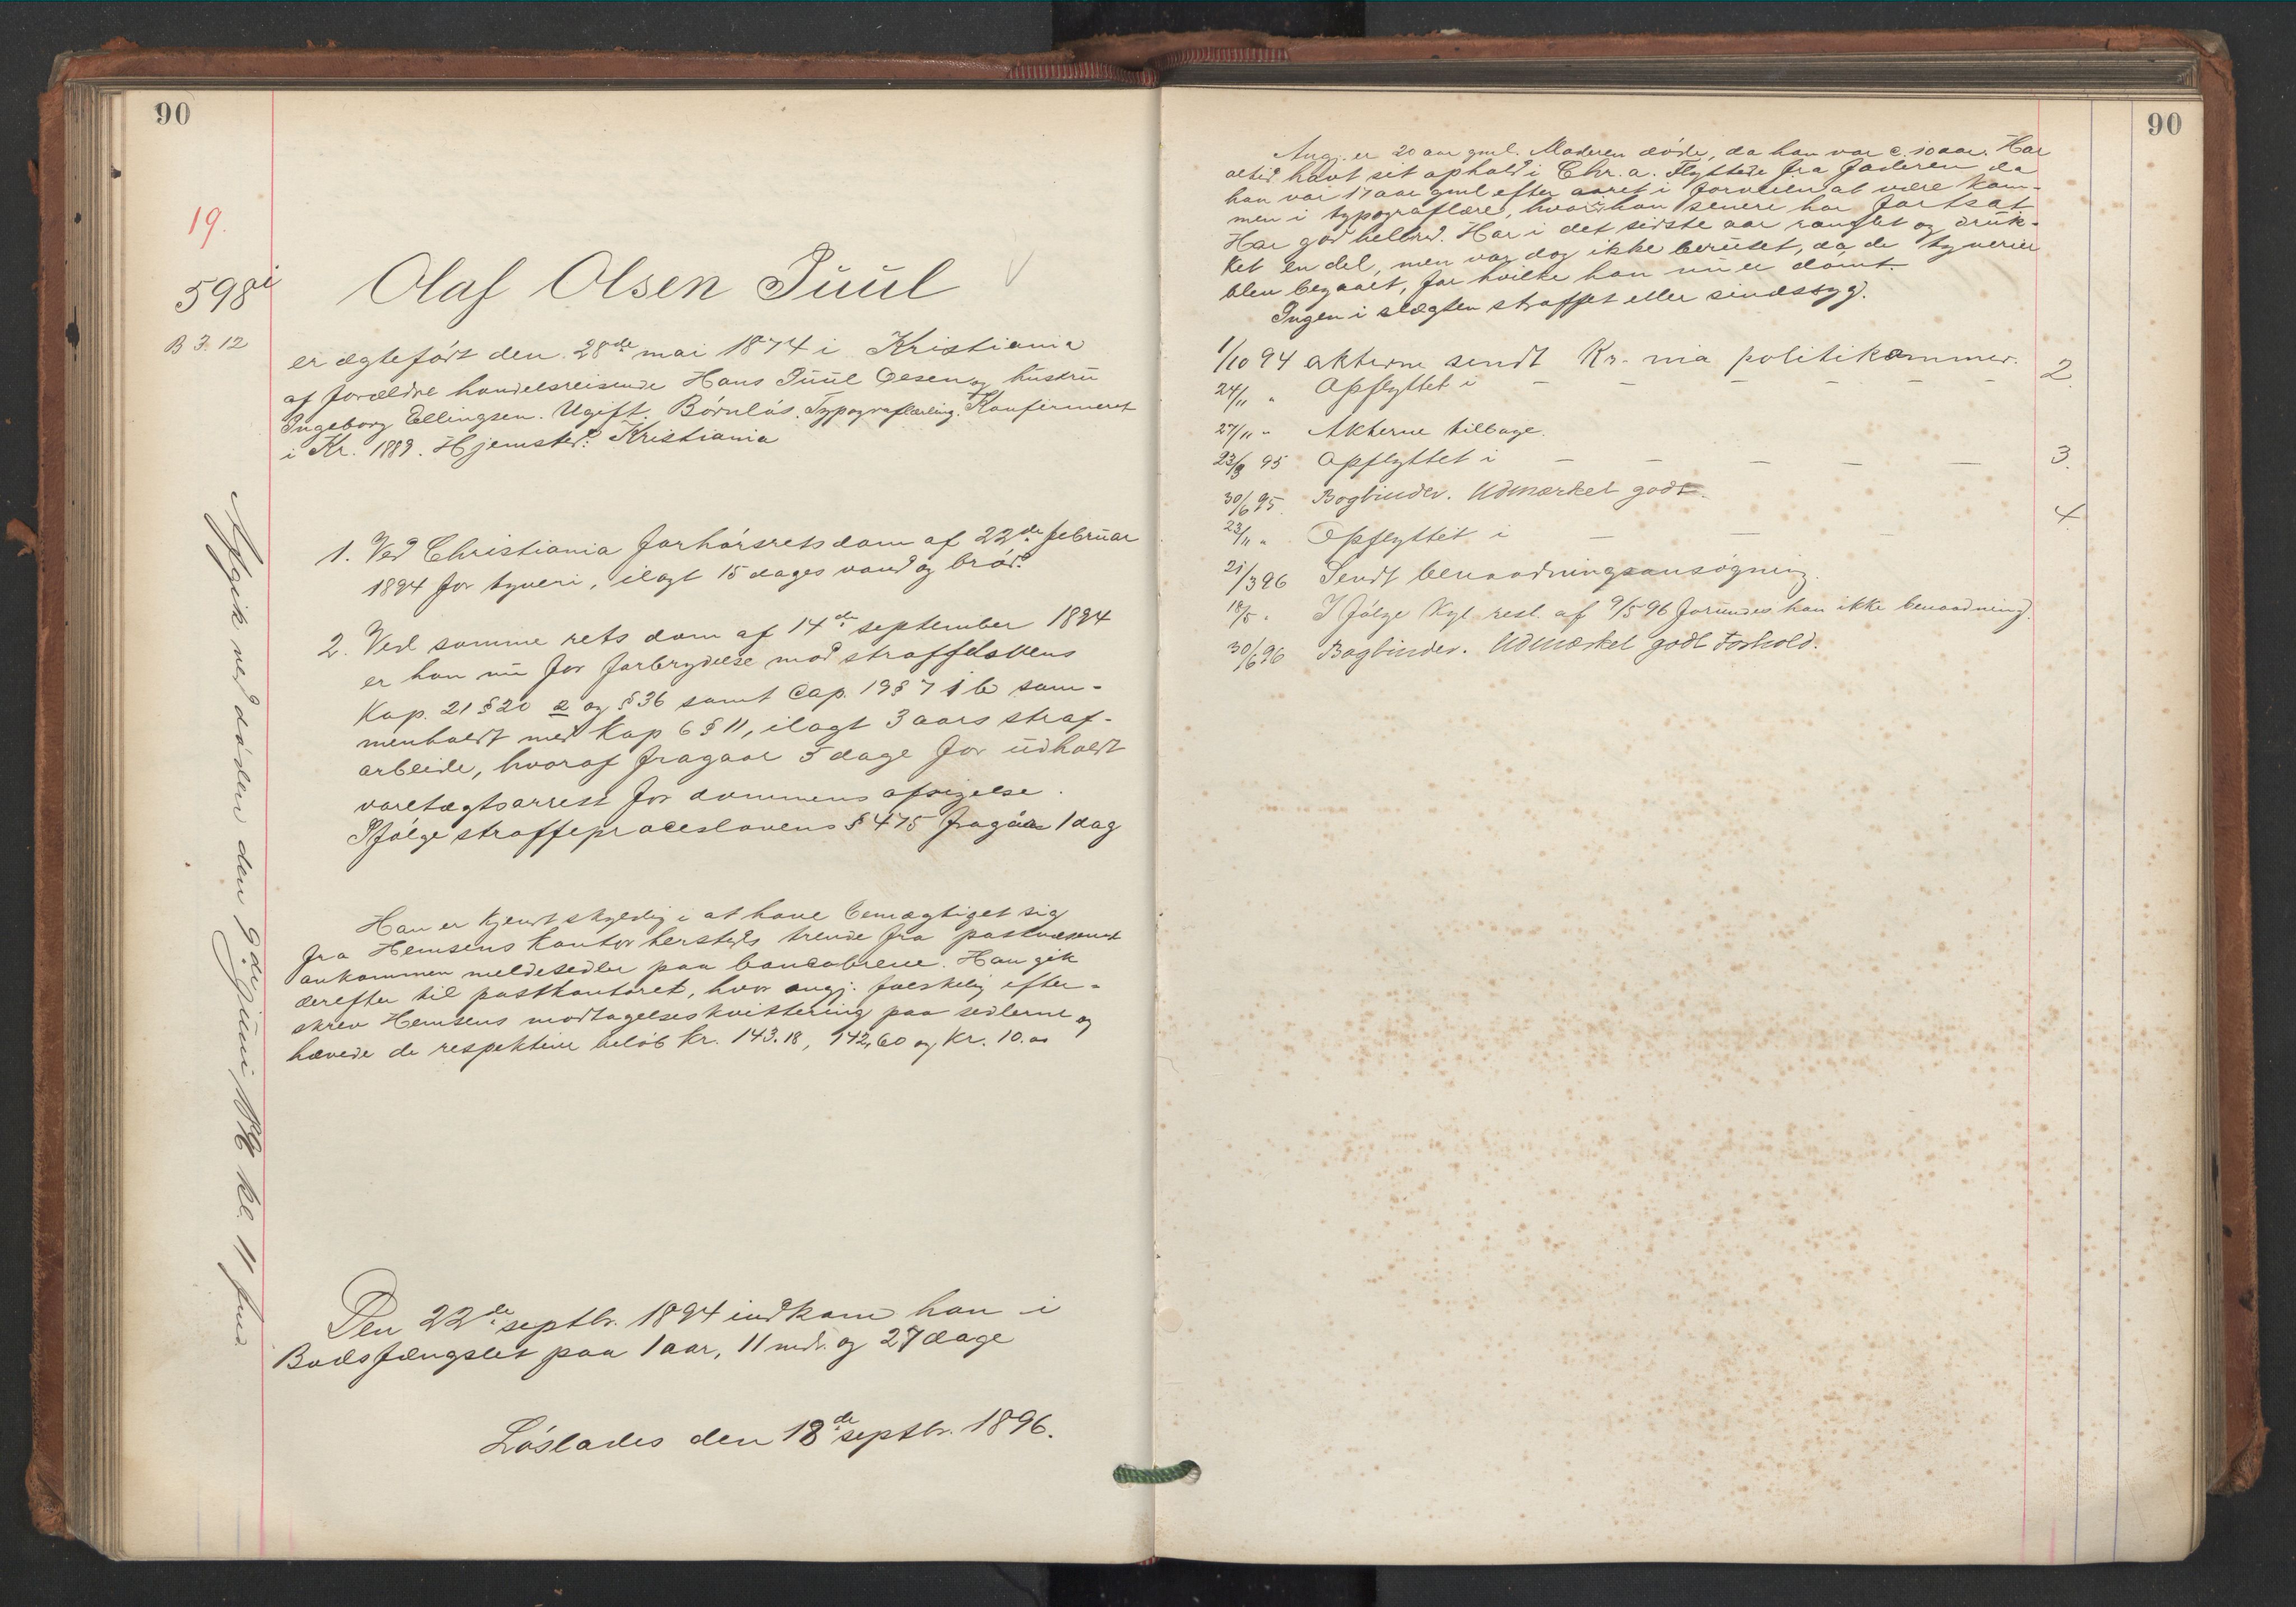 90
19.
598i
B 3. 12
Olaf Olsen Juul
er ægtefødt den 28de mai 1874 i Kristiania
af forældre handelsreisende Hans Juul Olsen og hustru
Ingeborg Ellingsen. Ugift. Børnløs. Typograflærling. Konfirmeret
i Kr. 1889. Hjemsted: Kristiania
1. Ved Christiania forhørsrets dom af 22de februar
1894 for tyveri, ilagt 15 dages vand og brød.
2. Ved samme rets dom af 14de september 1894
er han nu for forbrydelse mod straffelovens
Kap. 21 § 20 2 og § 36 samt Cap. 19 § 7 i b sam-
menholdt med Kap 6 § 11, ilagt 3 aars straf-
arbeide, hvoraf fragaar 5 dage for udholdt
varetægtsarrest før dommens afsigelse.
Ifølge straffeproceslovens § 475 fragaar 1 dag
Han er kjendt skyldig i at have bemægtiget sig
fra Hemsens kontor hersteds trende fra postvæsenet
ankommen meldesedler paa bancobreve. Han gik
derefter til postkontoret, hvor angj. falskelig efter-
skrev Hemsens modtagelseskvittering paa sedlerne og
hævede de respektive beløb kr. 143.18, 142,60 og Kr. 10.00
Den 22de septbr. 1894 indkom han i
Bodsfængslet paa 1 aar, 11 mdr. og 27 dage
Løslades den 18de septbr. 1896.
Afgik ved døden den 9de juni kl. 11 fmd.
90
Angj. er 20 aar gml. Moderen døde, da han var c. 10 aar. Har
altid havt sit ophold i Chr.a. Flyttede fra faderen da
han var 17 aar gml efter aaret i forveien at være kom-
men i typograflære, hvori han senere har fortsat
Har god helbred. Har i det sidste aar ranglet og druk-
ket en del, men var dog ikke beruset, da de tyverier
blev begaaet, for hvilke han nu er dømt.
Ingen i slægten straffet eller sindssyg.
1/10 94 akterne sendt Kr.nia politikammer.
24/11 " Opflyttet i - - - - - 2.
27/11 " Akterne tilbage.
23/3 95 Opflyttet i - - - - - 3.
30/6 95. Bogbinder. Udmærket godt.
23/11 " Opflyttet i - - - 4.
21/3 96 Sendt benaadningsansøgning.
18/5 " I følge Kgl. resl. af 9/5 96 forundes han ikke benaadning.
30/6 96 Bogbinder. Udmærket godt Forhold.